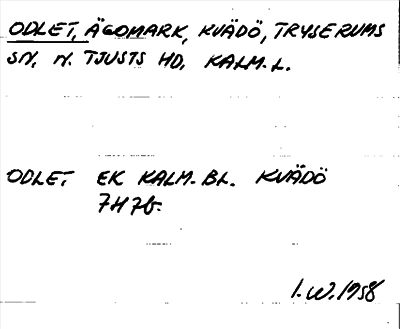 ODLET, ÄGOMARK, KVÄDÖ, TRYSERUMS
SN, N. TJUSTS HD, KALM. L.
ODLET EK KALM. BL. KVÄDÖ
7H7b.
I.W. 1958